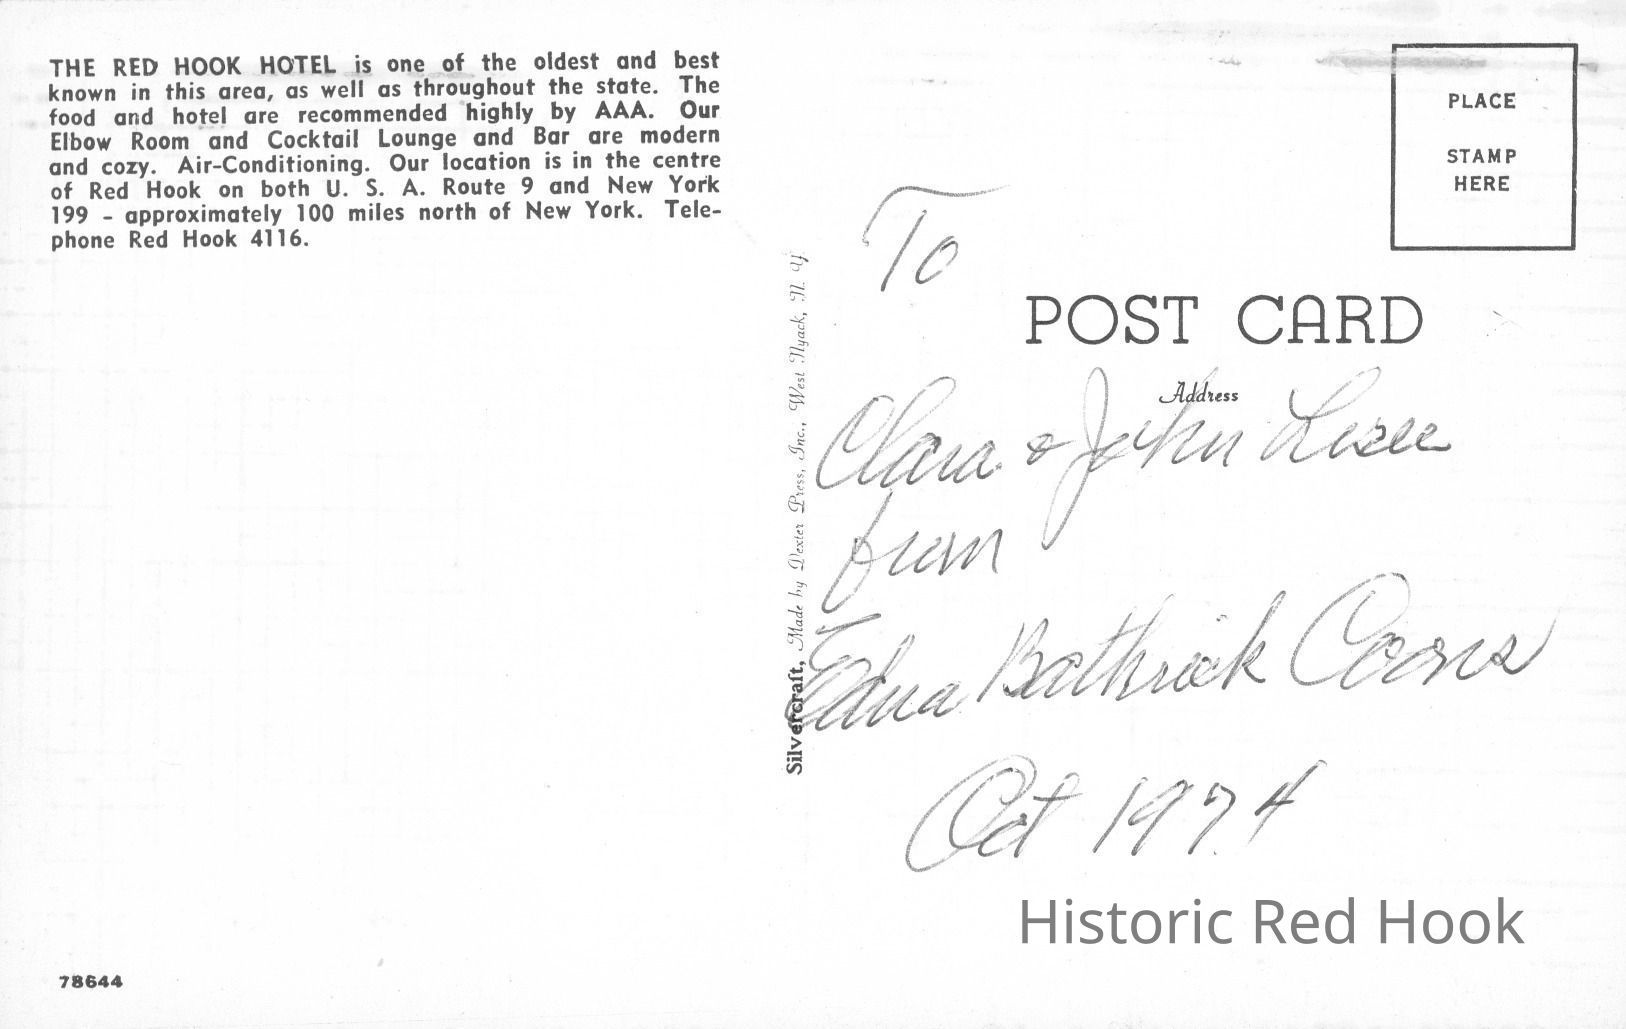 THE RED HOOK HOTEL is one of the oldest and best
known in this area, as well as throughout the state. The
food and hotel are recommended highly by AAA. Our
Elbow Room and Cocktail Lounge and Bar are modern
and cozy. Air-Conditioning. Our location is in the centre
of Red Hook on both U. S. A. Route 9 and New York
199 - approximately 100 miles north of New York. Tele-
phone Red Hook 4116.
78644
Silvercraft, Made by Dexter Press, Inc., West Nyack, N. Y.
PLACE
STAMP
HERE
To
POST CARD
Address
Clara & John Losee
from
Edna Bathrick Coons
Oct 1974
Historic Red Hook